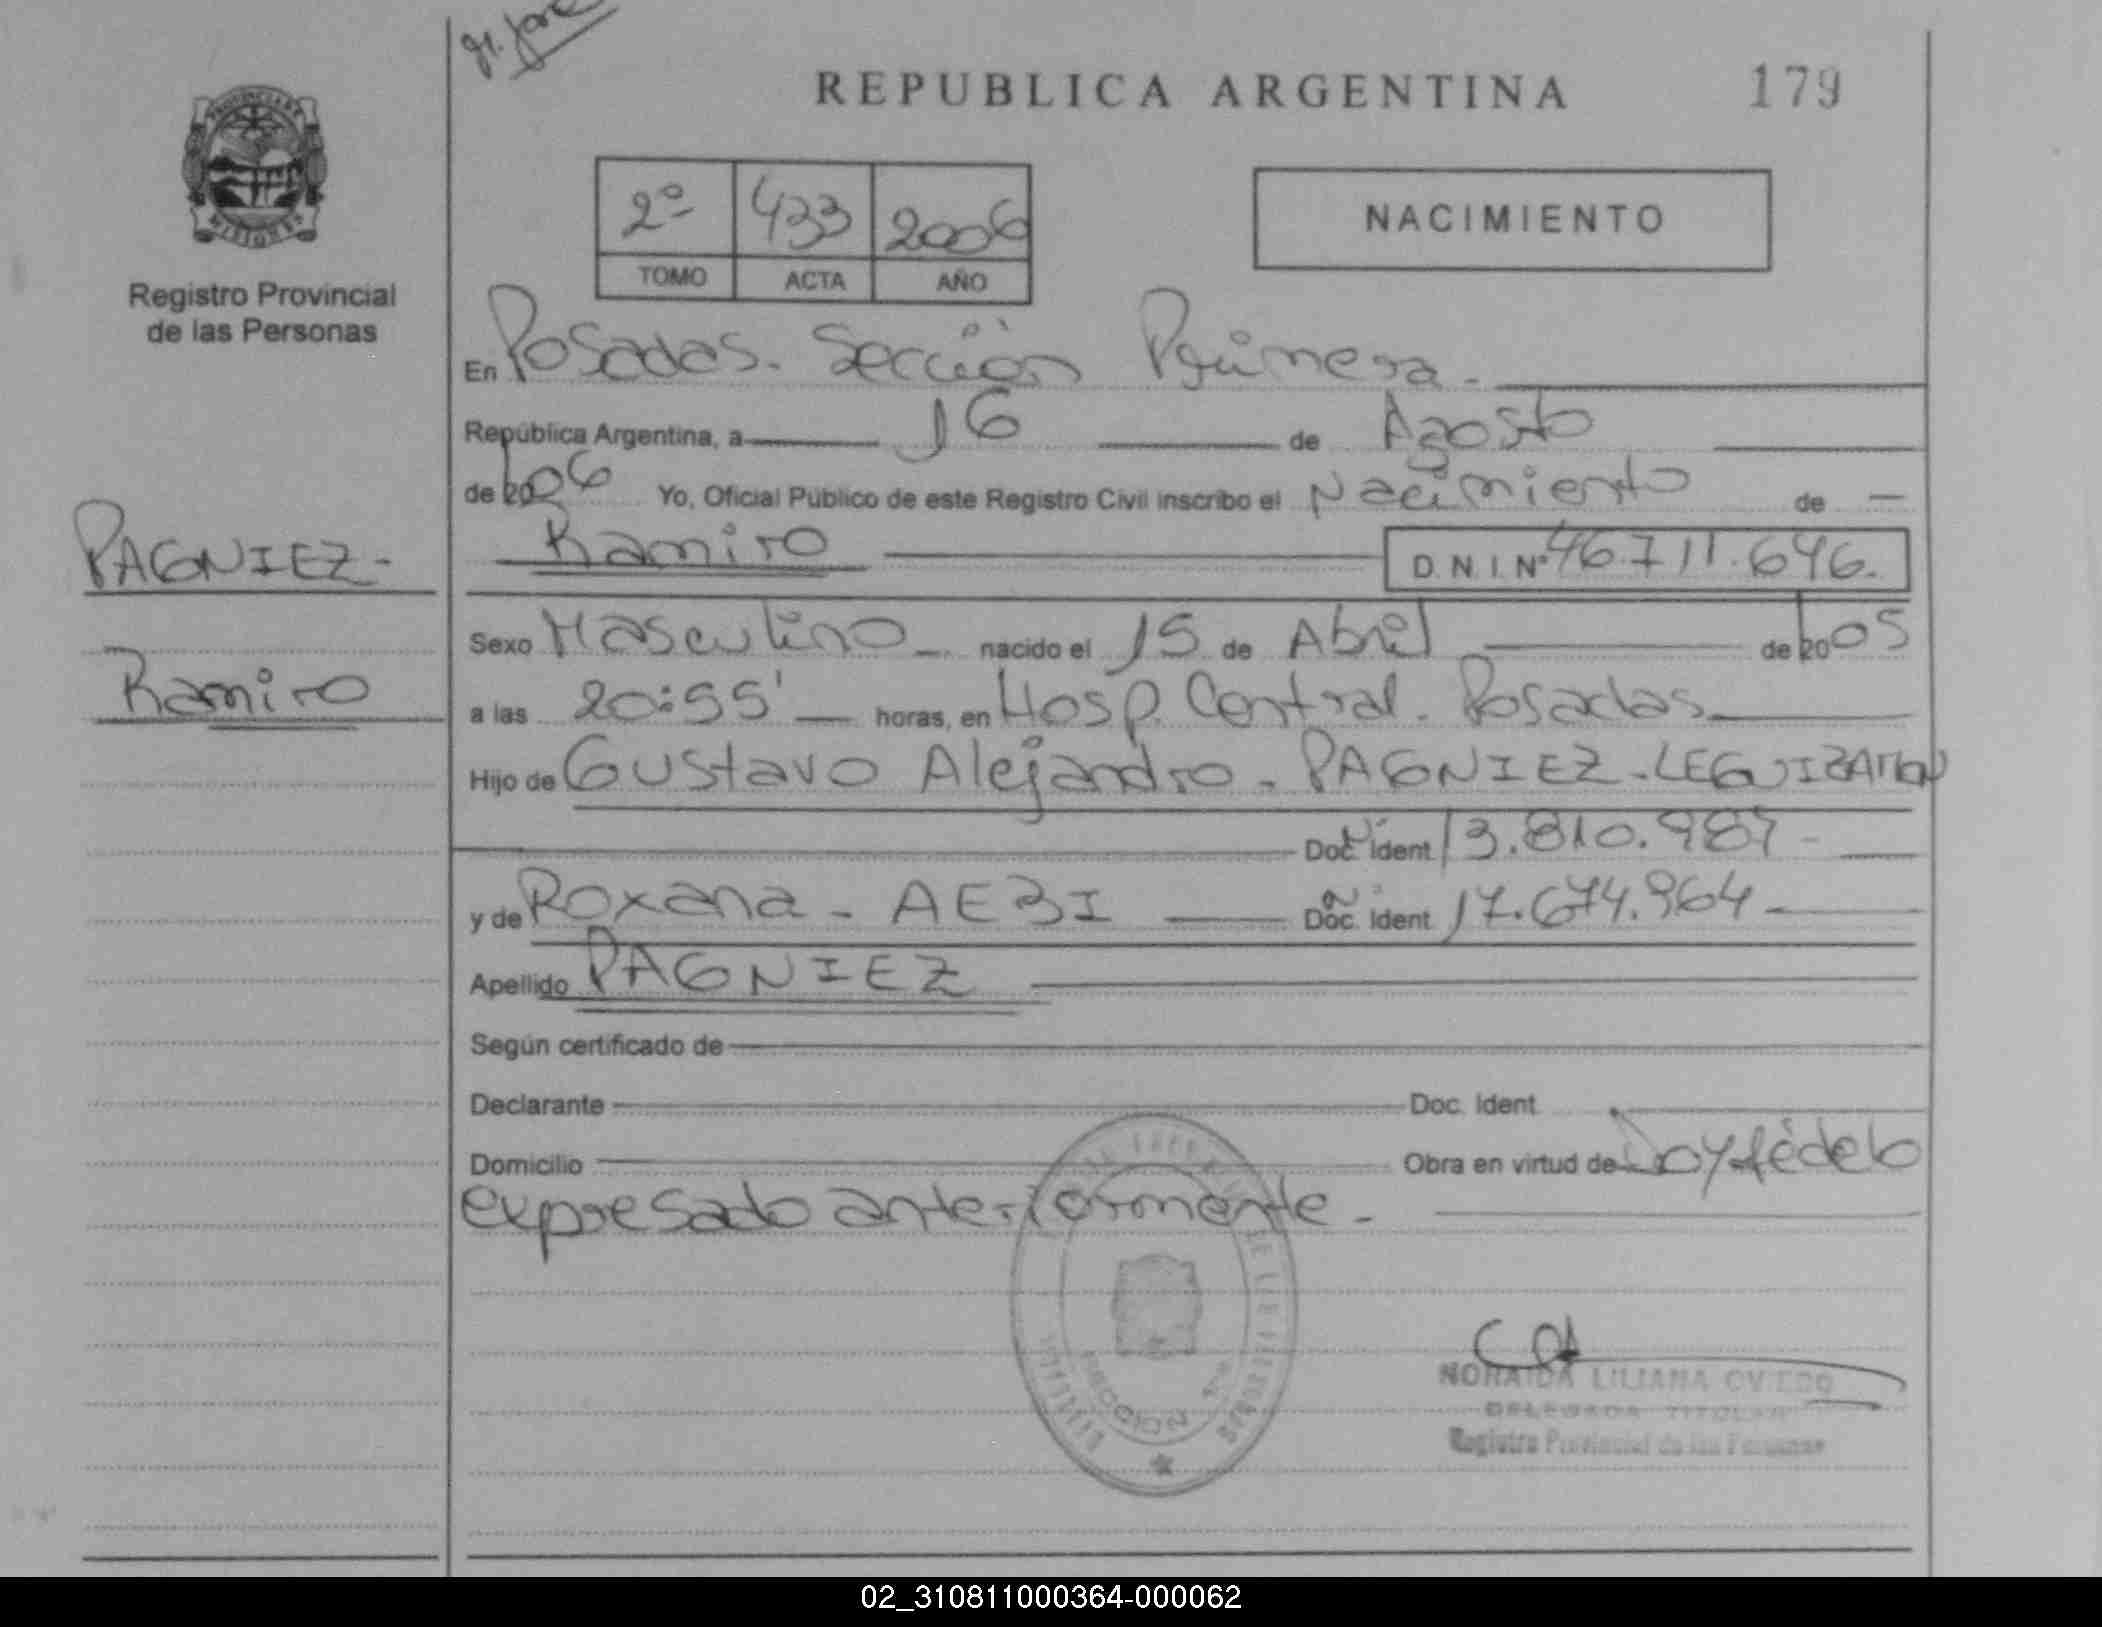 REPUBLICA ARGENTINA
179
PROVINCIA DE
MISIONES
Registro Provincial
de las Personas
2º 433 2006
TOMO ACTA AÑO
NACIMIENTO
En Posadas. Sección Primera.
República Argentina, a 16 de Agosto
de 2006 Yo, Oficial Público de este Registro Civil inscribo el Nacimiento de
Ramiro D.N.I. Nº 46.711.646.
PAGNIEZ-
Ramiro
Sexo Masculino nacido el 15 de Abril de 2005
a las 20:55' horas, en Hosp. Central. Posadas
Hijo de Gustavo Alejandro - PAGNIEZ - LEGUIZAMON
Doc. Ident 13.810.987-
y de Roxana - AEBI Doc. Ident 17.674.964-
Apellido PAGNIEZ
Según certificado de
Declarante Doc. Ident
Domicilio Obra en virtud de Doy fé de lo
expresado anteriormente-
SECCION 1ra
NORAIDA LILIANA OVIEDO
DELEGADA TITULAR
Registro Provincial de las Personas
02_310811000364-000062